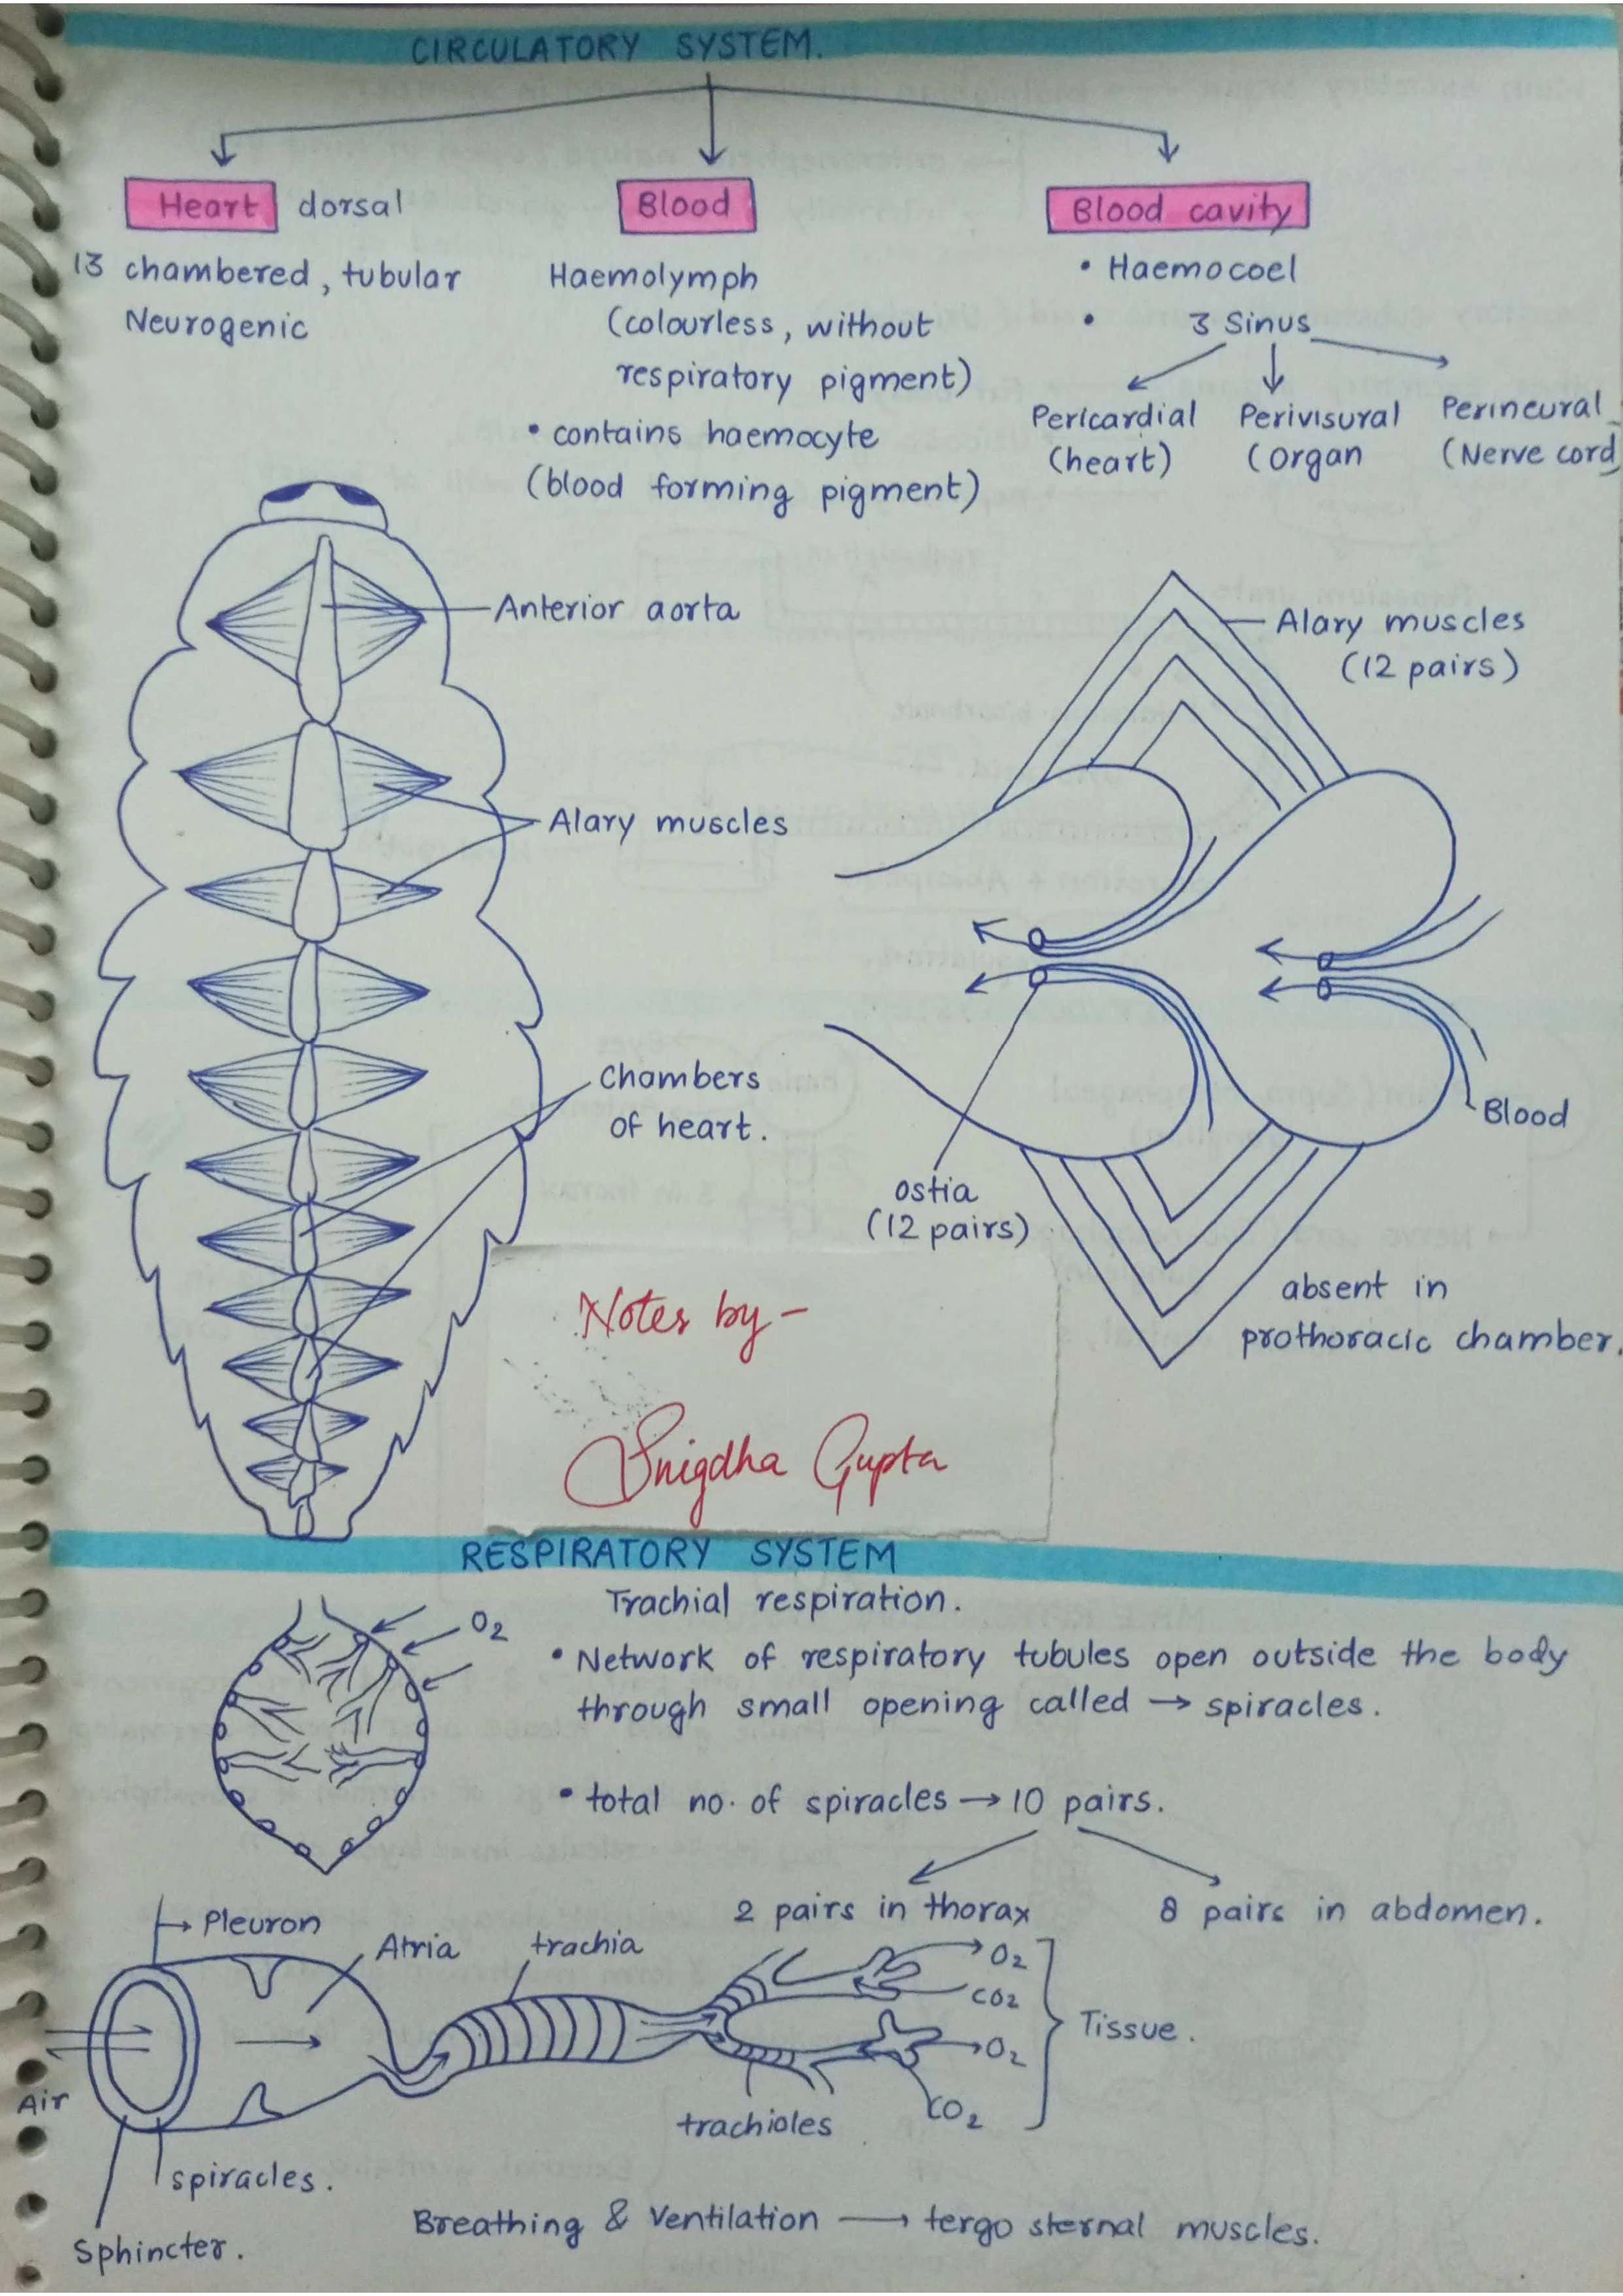 CIRCULATORY SYSTEM.
Heart dorsal
13 chambered, tubular
Neurogenic
Blood
Haemolymph
(colourless, without
respiratory pigment)
• contains haemocyte
(blood forming pigment)
Blood cavity
• Haemocoel
• 3 Sinus
Pericardial
(heart)
Perivisural
(organ
Perineural
(Nerve cord)
Anterior aorta
Alary muscles
Chambers
of heart.
Alary muscles
(12 pairs)
Blood
ostia
(12 pairs)
absent in
prothoracic chamber.
Notes by -
Snigdha Gupta
RESPIRATORY SYSTEM
Trachial respiration.
O2
• Network of respiratory tubules open outside the body
through small opening called → spiracles.
• total no. of spiracles → 10 pairs.
2 pairs in thorax
8 pairs in abdomen.
Pleuron
Atria
trachia
O2
CO2
O2
CO2
Tissue.
trachioles
Air
spiracles.
Sphincter.
Breathing & Ventilation → tergo sternal muscles.